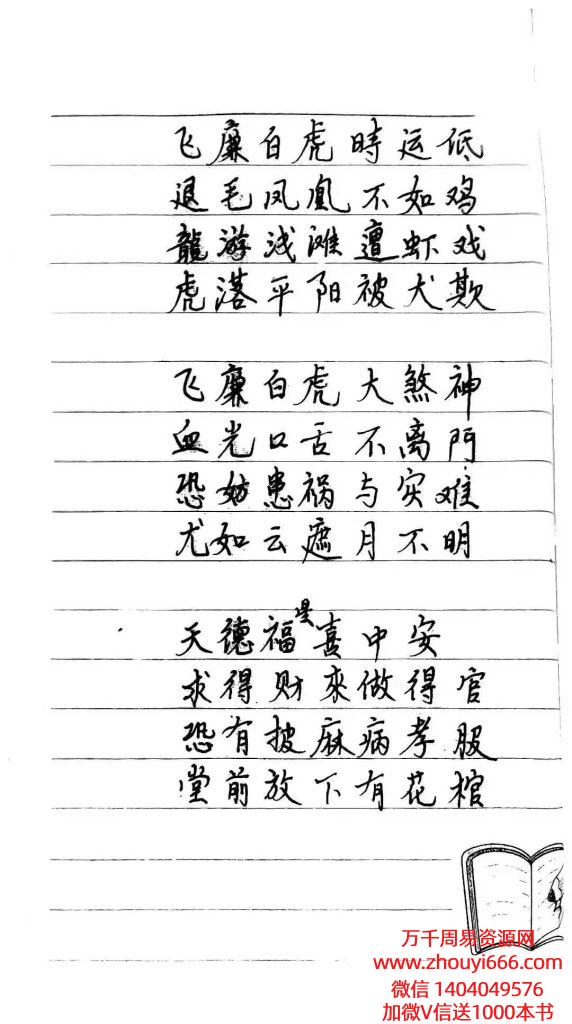 飞廉白虎時运低
退毛凤凰不如鸡
龍游浅滩遭虾戏
虎落平阳被犬欺
飞廉白虎大煞神
血光口舌不离門
恐妨患祸与灾难
尤如云遮月不明
天德福星喜中安
求得财來做得官
恐有披麻病孝服
堂前放下有花棺
万千周易资源网
www.zhouyi666.com
微信 1404049576
加微V信送1000本书